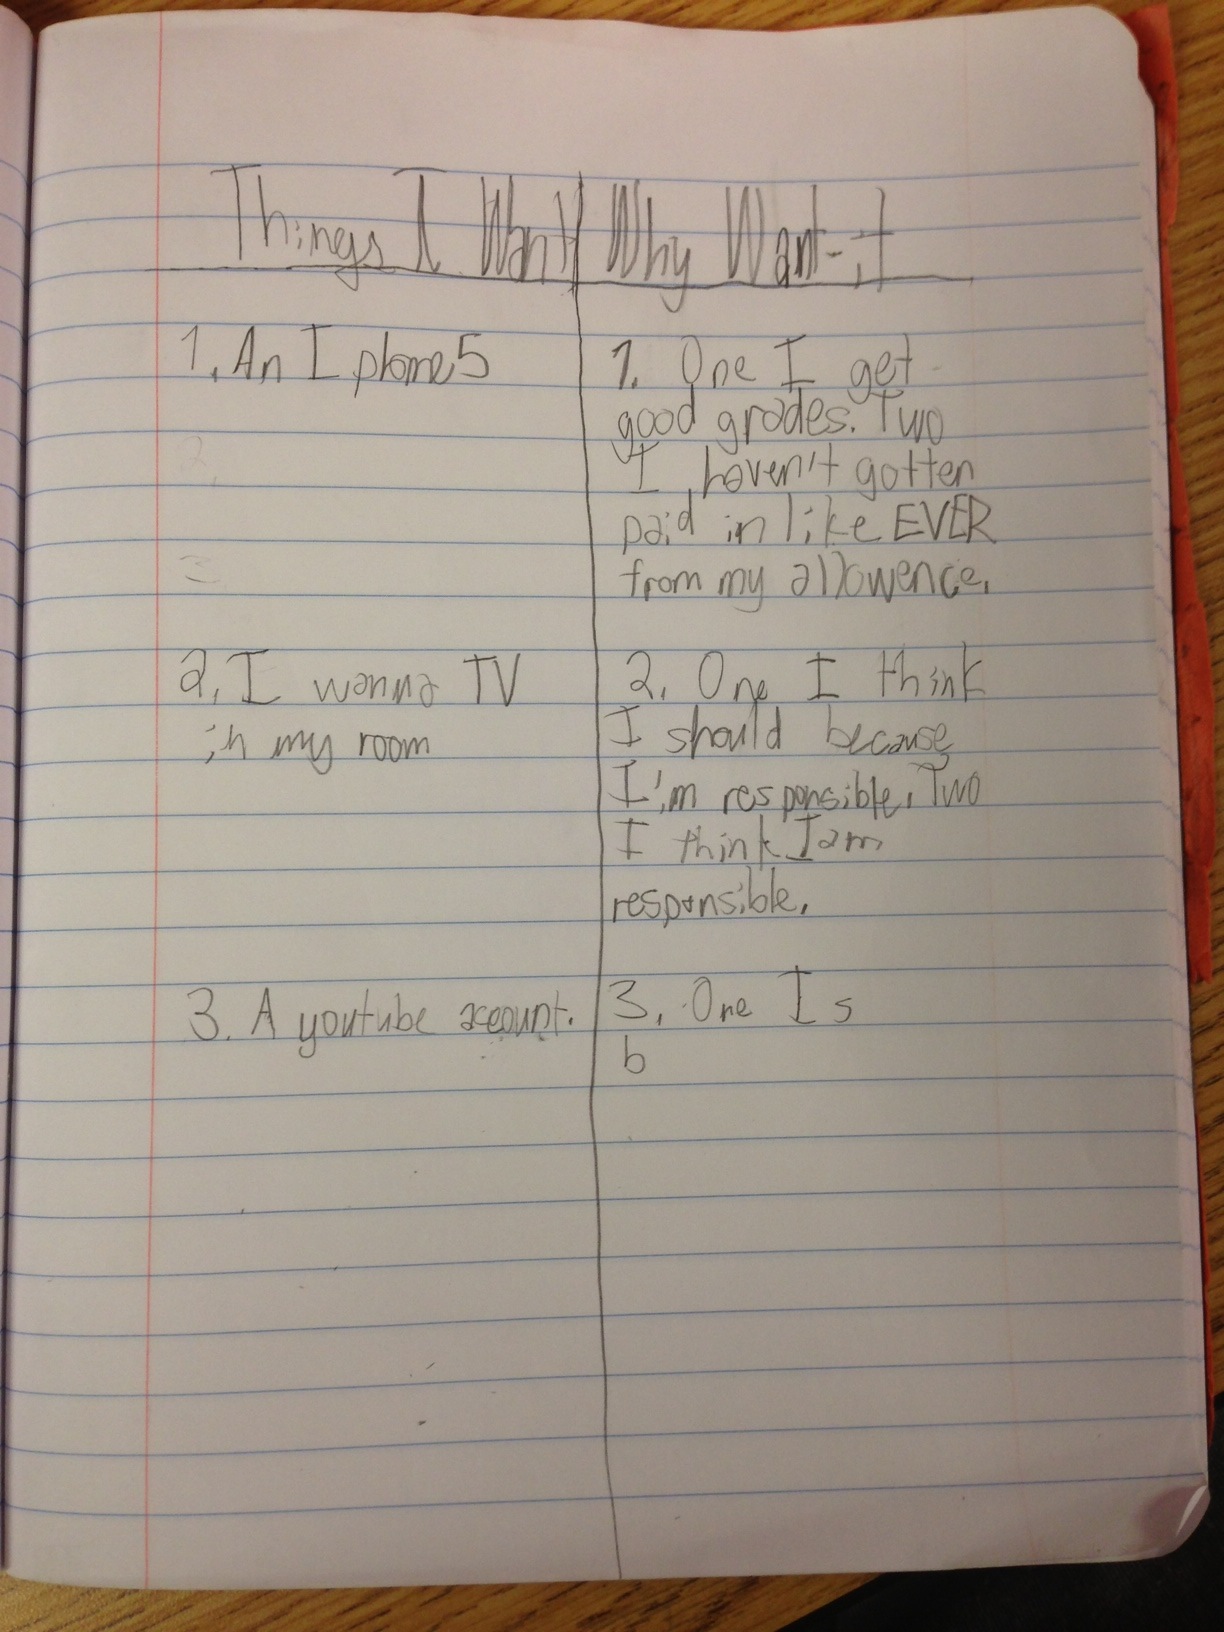 Things I Want
Why Want it
1. An I phone 5
1. One I get
good grades. Two
I haven't gotten
paid in like EVER
from my allowence.
2.
3
2. I wanna TV
in my room
2. One I think
I should because
I'm responsible. Two
I think I am
responsible.
3. A youtube account.
3. One I s
b